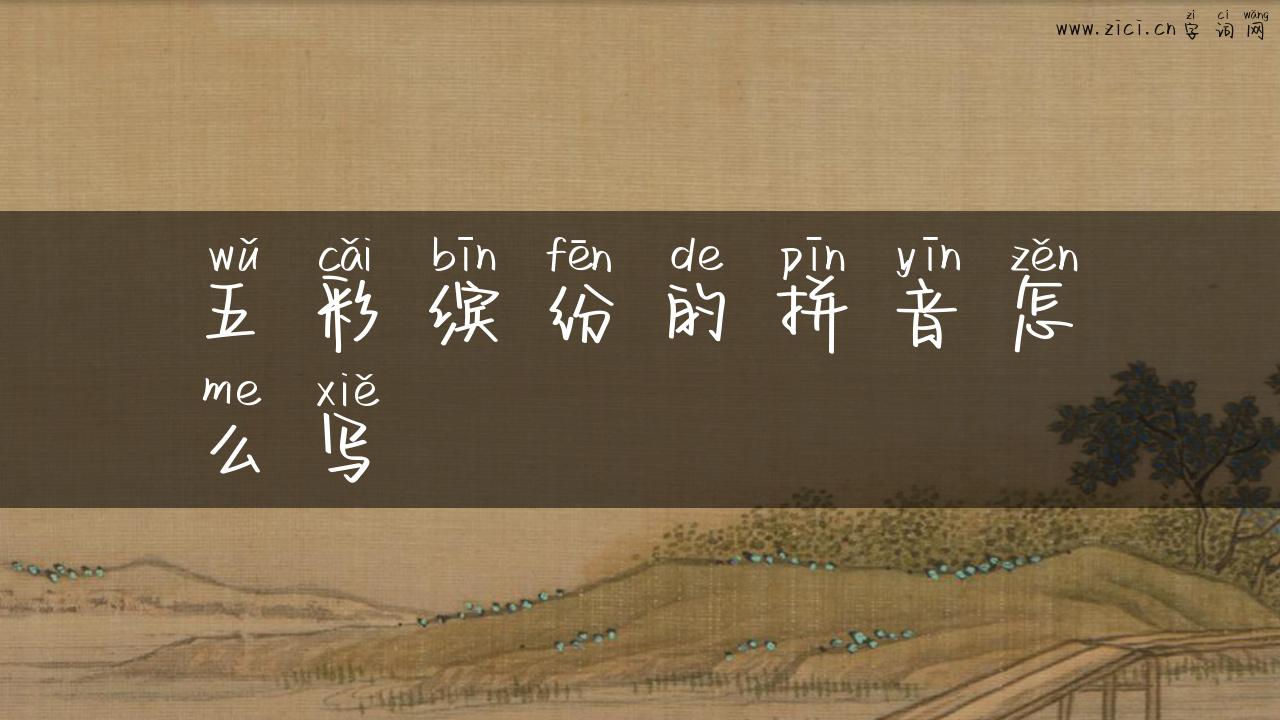 zì cí wǎng
www.zici.cn字词网
wǔ cǎi bīn fēn de pīn yīn zěn
五彩缤纷的拼音怎
me xiě
么写